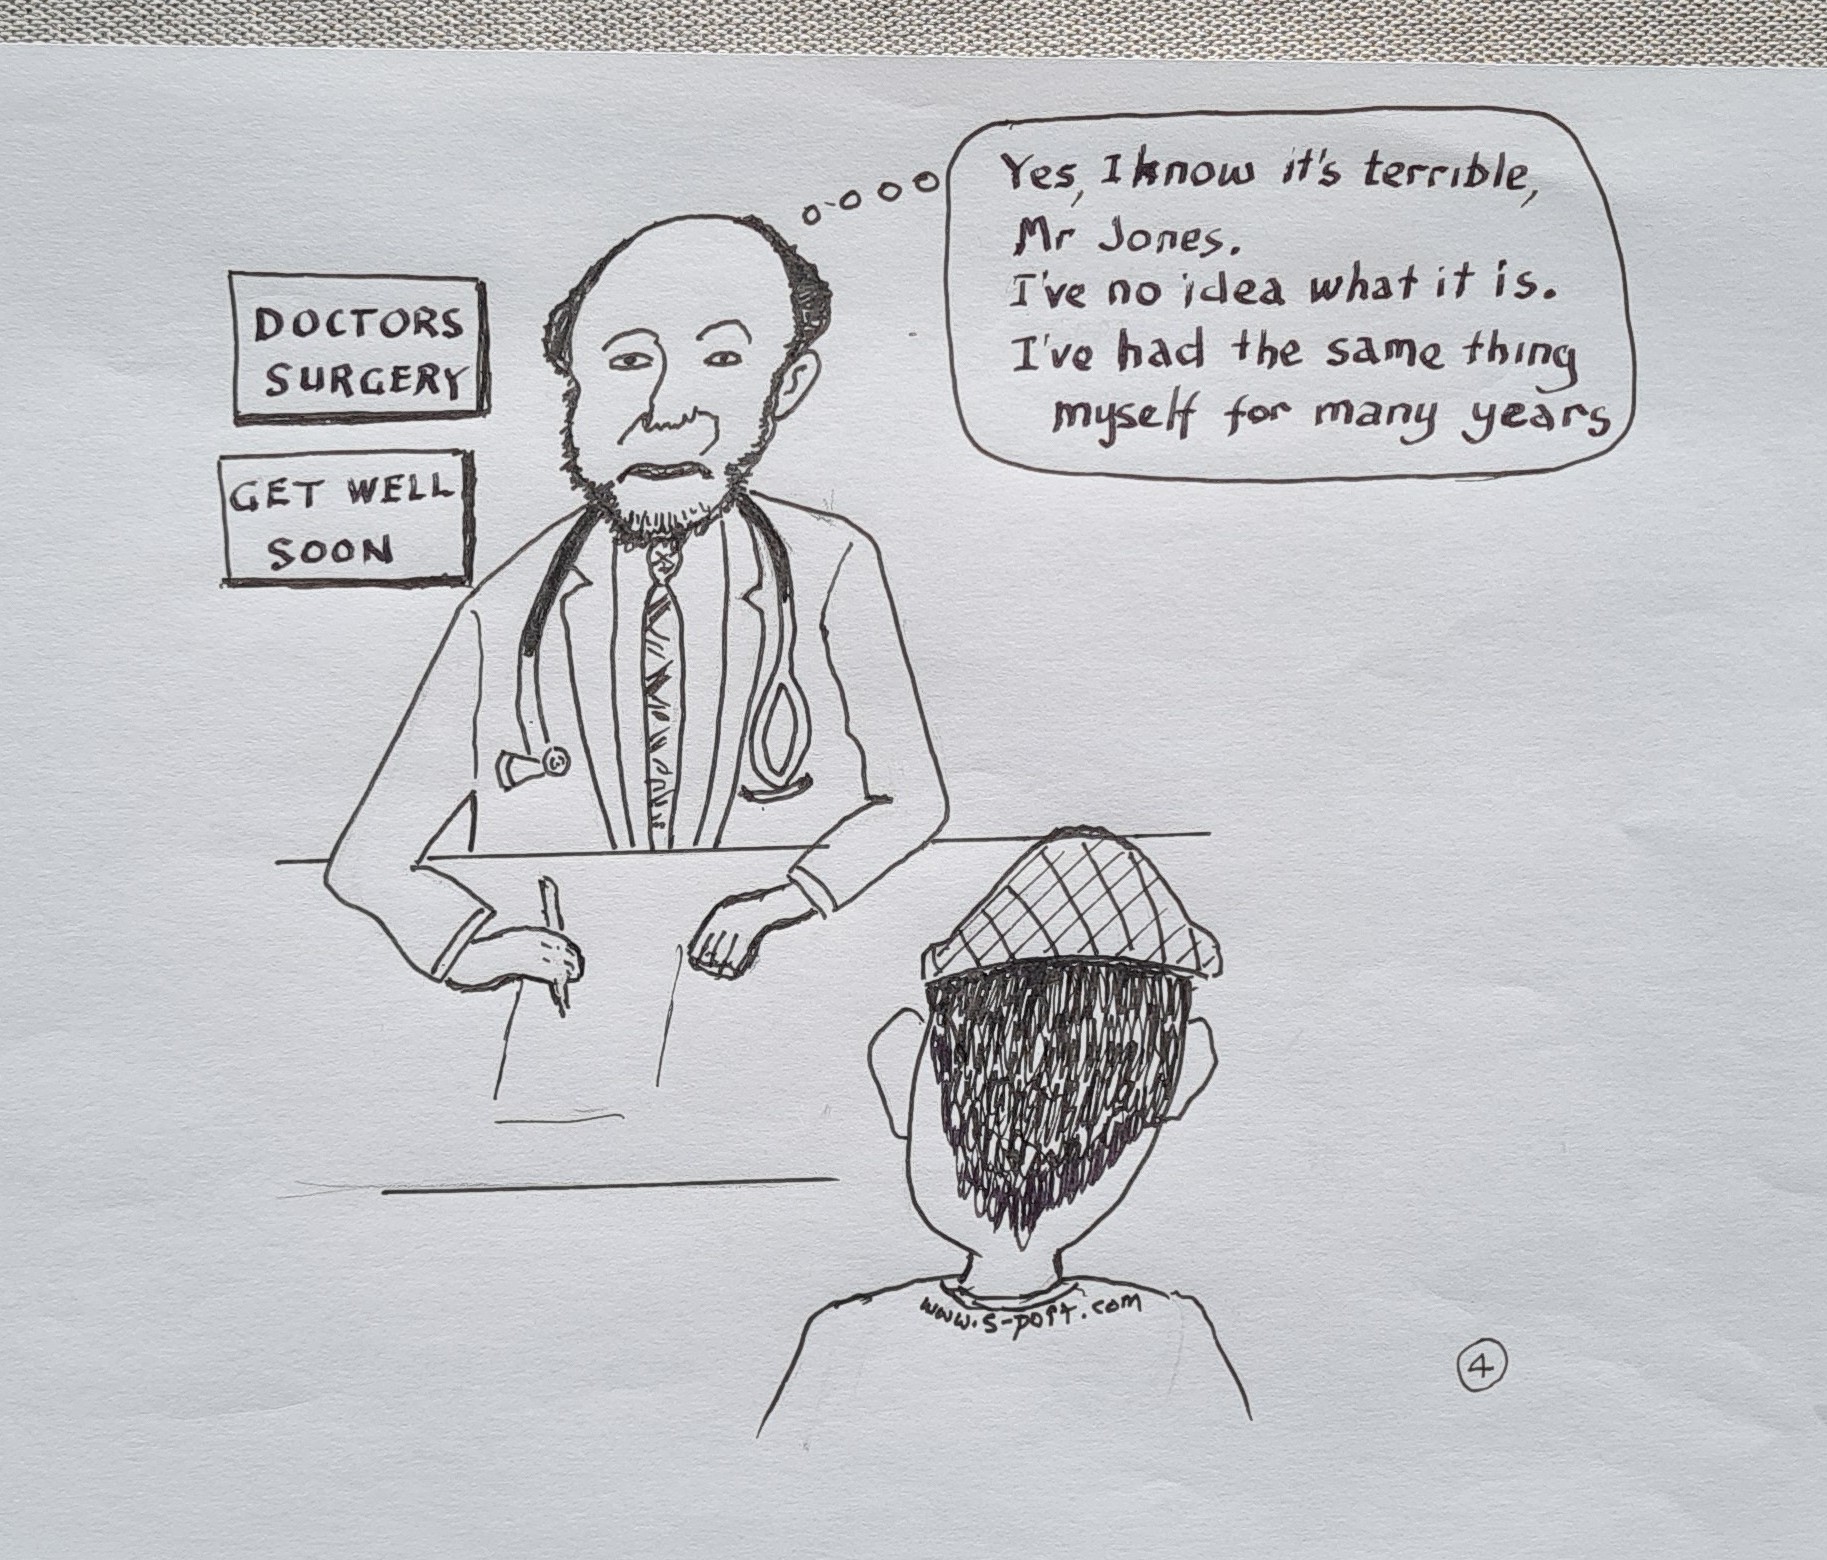 Yes, I know it's terrible,
Mr Jones.
I've no idea what it is.
I've had the same thing
myself for many years
DOCTORS
SURGERY
GET WELL
SOON
4